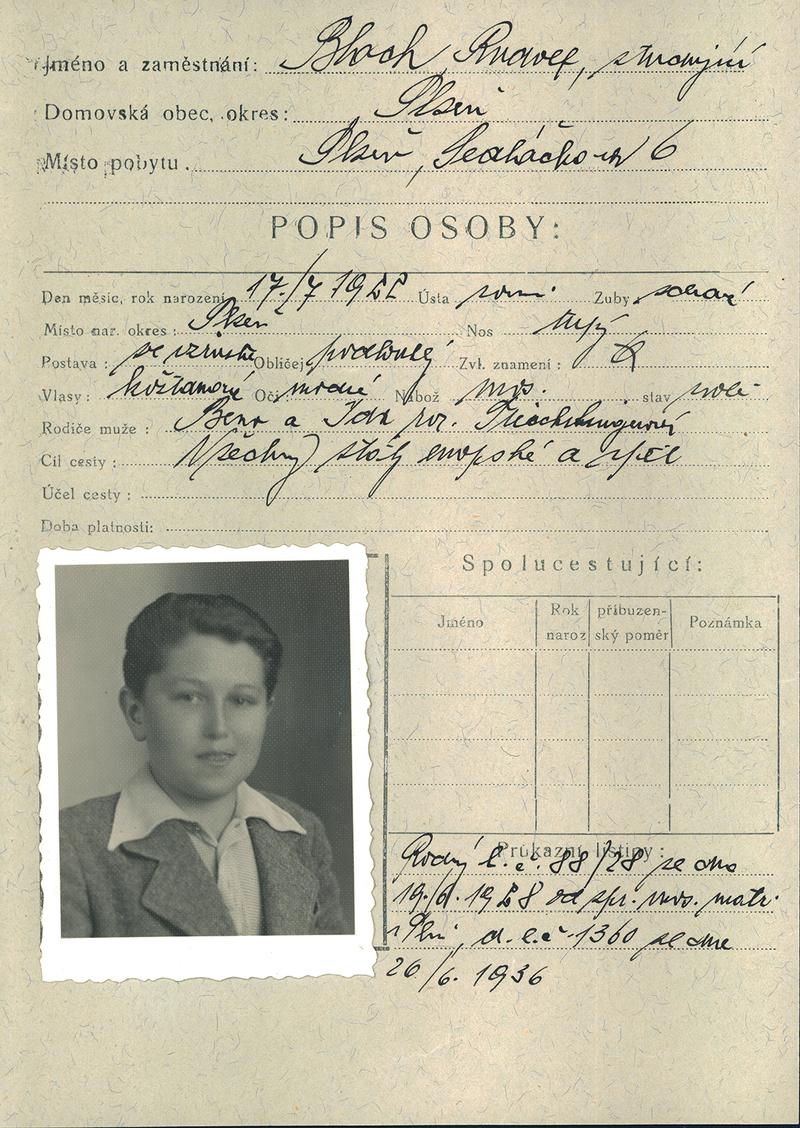 Jméno a zaměstnání: Bloch Rudolf, studující
Domovská obec, okres: Plzeň
Místo pobytu. Plzeň, Sedláčkova 6
POPIS OSOBY:
Den měsíc, rok narození 17./7 1922 Ústa rovni Zuby zdravé
Místo nar. okres: Plzeň Nos tupý
Postava: ve vzrůstu Obličej podlouhlý Zvl. znamení:
Vlasy: kaštanové Oči modré Nábož mos. stav svob.
Rodiče muže: Beno a Ida roz.
Cíl cesty: Všechny státy evropské a zpět
Účel cesty:
Doba platnosti:
Spolucestující:
Jméno Rok naroz příbuzenský poměr Poznámka
Průkazní listiny:
Rodný l. č. 88/28 ze dne
19./6. 1928 od spr. mos. matr.
v Plzni, d. l. č. 1360 ze dne
26/6. 1936